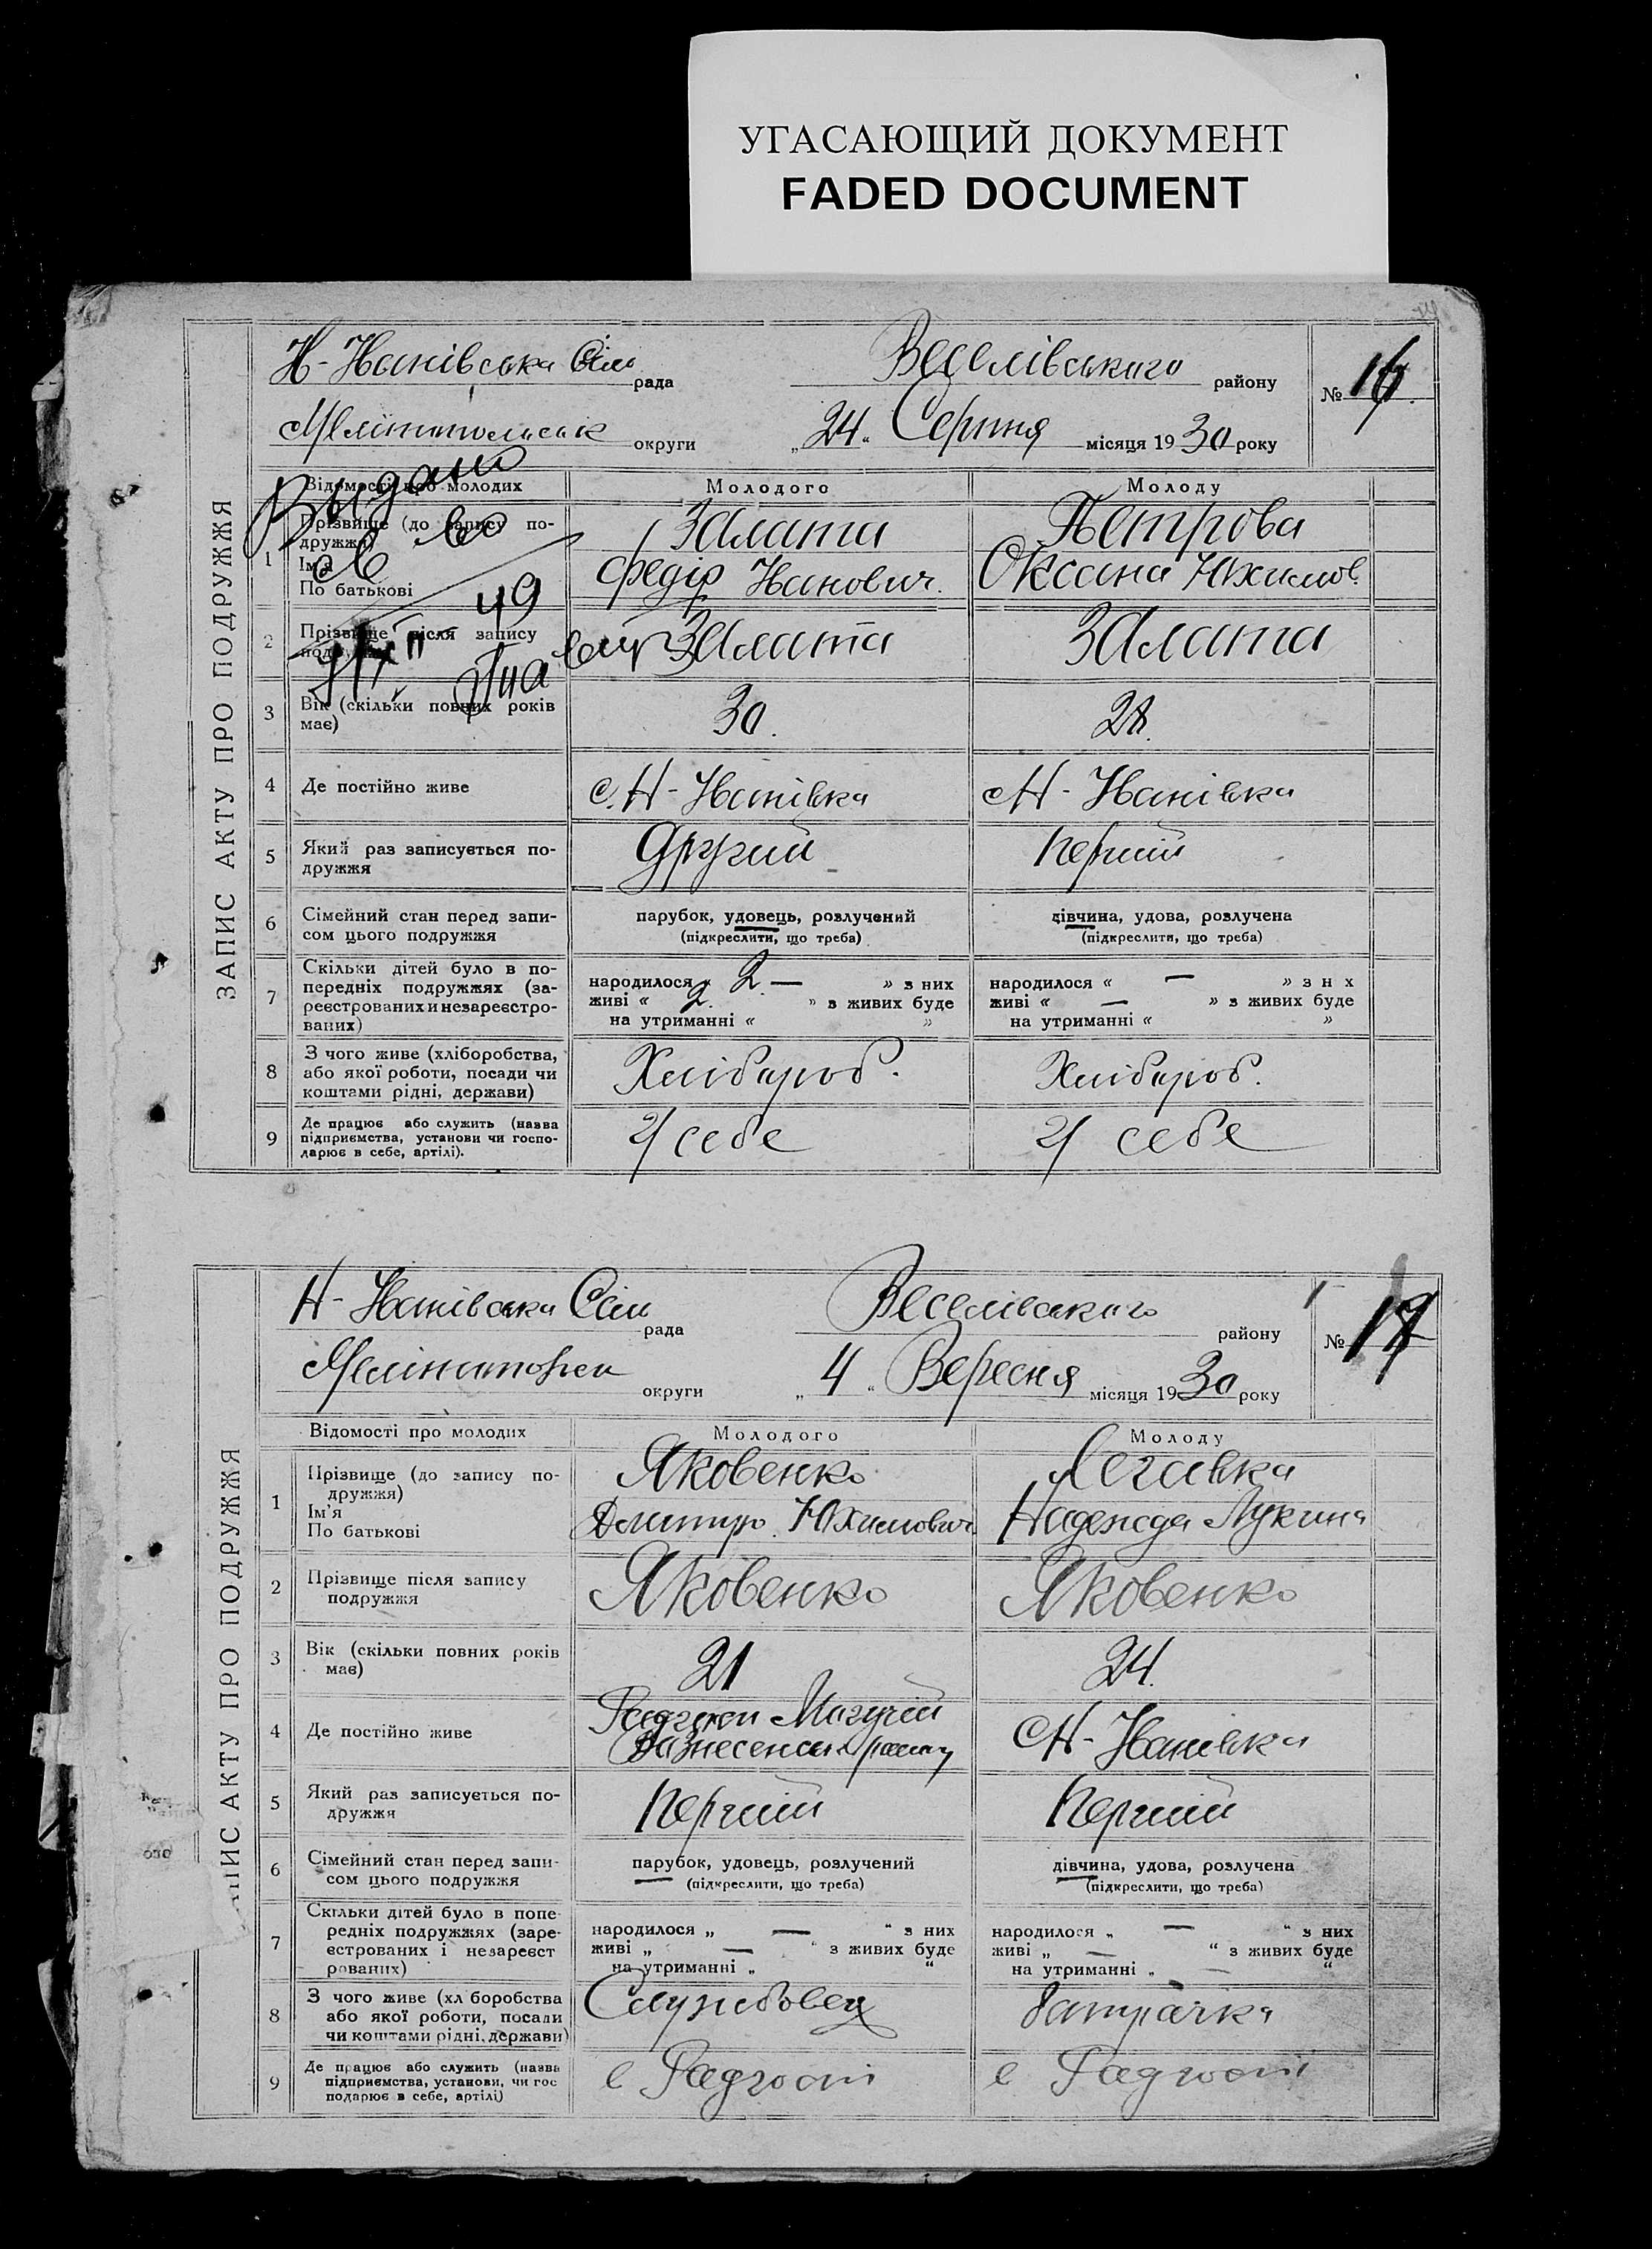 УГАСАЮЩИЙ ДОКУМЕНТ
FADED DOCUMENT
ЗАПИС АКТУ ПРО ПОДРУЖЖЯ
Н-Іванівська Сіль рада Веселівського району № 16
округи „24“ Серпня місяця 1930 року
Выдано
св во
49
Відомості про молодих Молодого Молоду
1 Прізвище (до запису подружжя) Залата Петрова
Ім'я
По батькові Федір Іванович. Оксана Юхимов.
2 Прізвище після запису подружжя Залата Залата
3 Вік (скільки повних років має) 30. 28.
4 Де постійно живе с. Н-Іванівка с Н-Іванівка
5 Який раз записується подружжя Другий Перший
6 Сімейний стан перед записом цього подружжя парубок, удовець, розлучений дівчина, удова, розлучена
(підкреслити, що треба) (підкреслити, що треба)
7 Скільки дітей було в попередніх подружжях (зареєстрованих и незареєстрованих) народилося « 2 — » з них народилося « — » з н х
живі « 2. » з живих буде живі « — » з живих буде
на утриманні « » на утриманні « »
8 З чого живе (хліборобства, або якої роботи, посади чи коштами рідні, держави) Хлібороб. Хлібороб.
9 Де працює або служить (назва підприємства, установи чи господарює в себе, артілі). У себе У себе
ЗАПИС АКТУ ПРО ПОДРУЖЖЯ
Н-Іванівська Сіль рада Веселівського району № 17
округи „4“ Вересня місяця 1930 року
Відомості про молодих Молодого Молоду
1 Прізвище (до запису подружжя) Яковенко
Ім'я
По батькові Дмитро Юхимович Надежда Лукина
2 Прізвище після запису подружжя Яковенко Яковенко
3 Вік (скільки повних років має) 21 24.
4 Де постійно живе с Н-Іванівка
5 Який раз записується подружжя Перший Перший
6 Сімейний стан перед записом цього подружжя парубок, удовець, розлучений дівчина, удова, розлучена
(підкреслити, що треба) (підкреслити, що треба)
7 Скільки дітей було в попередніх подружжях (зареєстрованих і незареєст рованих) народилося „ — “ з них народилося „ — “ з них
живі „ — “ з живих буде живі „ — “ з живих буде
на утриманні „ “ на утриманні „ — “
8 З чого живе (хл боробства або якої роботи, посади чи коштами рідні, держави) Службовец батрачка
9 Де працює або служить (назва підприємства, установи, чи гос подарює в себе, артілі) в Радгоспі в Радгоспі